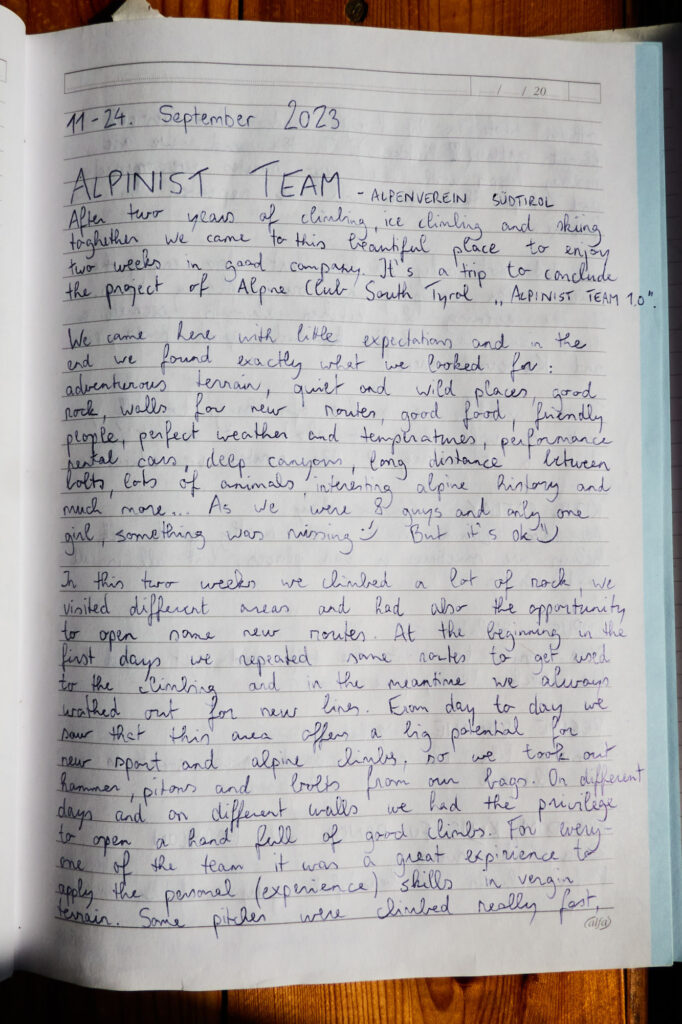 / / 20
11-24. September 2023
ALPINIST TEAM - ALPENVEREIN SÜDTIROL
After two years of climbing, ice climbing and skiing
toghether we came to this beautiful place to enjoy
two weeks in good company. It's a trip to conclude
the project of Alpine Club South Tyrol „ALPINIST TEAM 1.0".
We came here with little expectations and in the
end we found exactly what we looked for:
adventurous terrain, quiet and wild places, good
rock, walls for new routes, good food, friendly
people, perfect weather and temperatures, performance
rental cars, deep canyons, long distance between
bolts, lots of animals, interesting alpine history and
much more... As we were 8 guys and only one
girl, something was missing :) But it's ok :)
In this two weeks we climbed a lot of rock, we
visited different areas and had also the opportunity
to open some new routes. At the beginning in the
first days we repeated some routes to get used
to the climbing and in the meantime we always
wathed out for new lines. From day to day we
saw that this area offers a big potential for
new sport and alpine climbs, so we took out
hammer, pitons and bolts from our bags. On different
days and on different walls we had the privilege
to open a hand full of good climbs. For every-
one of the team it was a great expirience to
apply the personal (experience) skills in vergin
terrain. Some pitches were climbed really fast,
alfa